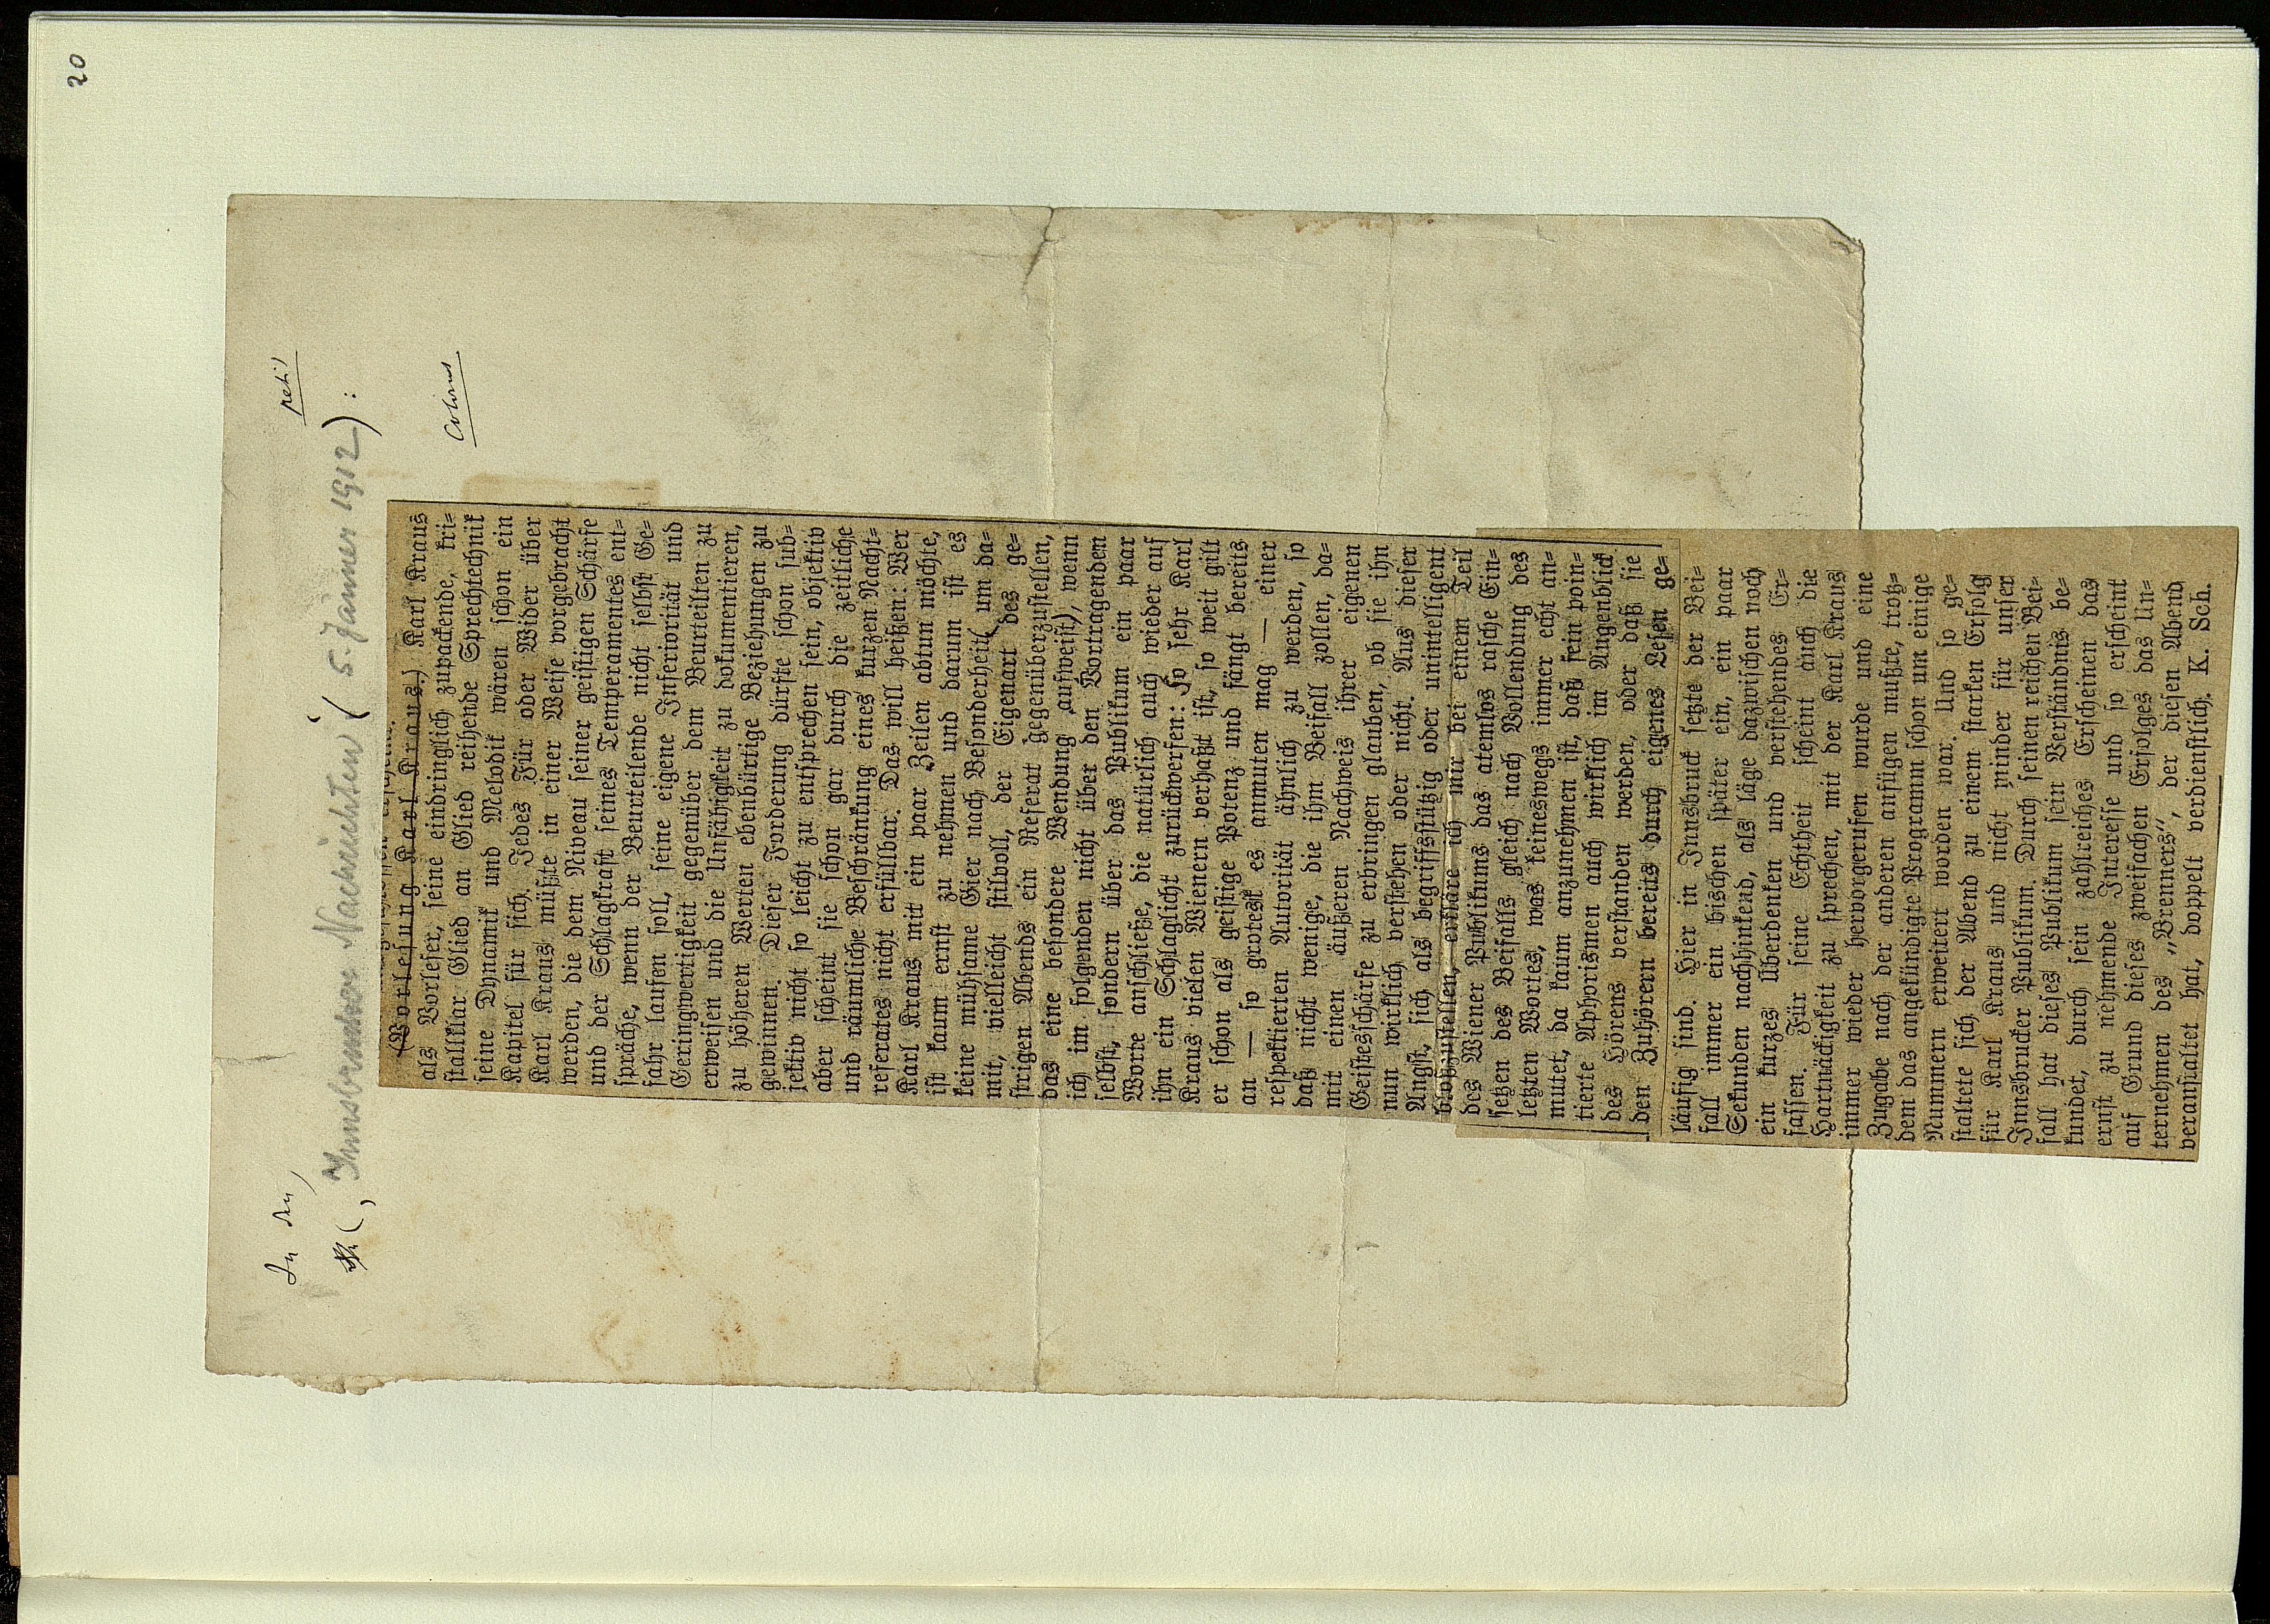 20
In den
petit
„Innsbrucker Nachrichten“ (5. Jänner 1912):
(Vorlesung Karl Kraus.) Karl Kraus
als Vorleser, seine eindringlich zupackende, kri-
stallklar Glied an Glied reihende Sprechtechnik
seine Dynamik und Melodik wären schon ein
Kapitel für sich. Jedes Für oder Wider über
Karl Kraus müßte in einer Weise vorgebracht
werden, die dem Niveau seiner geistigen Schärfe
und der Schlagkraft seines Temperamentes ent-
spräche, wenn der Beurteilende nicht selbst Ge-
fahr laufen soll, seine eigene Inferiorität und
Geringwertigkeit gegenüber dem Beurteilten zu
erweisen und die Unfähigkeit zu dokumentieren,
zu höheren Werten ebenbürtige Beziehungen zu
gewinnen. Dieser Forderung dürfte schon sub-
jektiv nicht so leicht zu entsprechen sein, objektiv
aber scheint sie schon gar durch die zeitliche
und räumliche Beschränkung eines kurzen Nacht-
referates nicht erfüllbar. Das will heißen: Wer
Karl Kraus mit ein paar Zeilen abtun möchte,
ist kaum ernst zu nehmen und darum ist es
keine mühsame Gier nach Besonderheit( um da-
mit, vielleicht stilvoll, der Eigenart des ge-
strigen Abends ein Referat gegenüberzustellen,
das eine besondere Wendung aufweist), wenn
ich im folgenden nicht über den Vortragenden
selbst, sondern über das Publikum ein paar
Worte anschließe, die natürlich auch wieder auf
ihn ein Schlaglicht zurückwerfen: So sehr Karl
Kraus vielen Wienern verhaßt ist, so weit gilt
er schon als geistige Potenz und fängt bereits
an — so grotesk es anmuten mag — einer
respektierten Autorität ähnlich zu werden, so
daß nicht wenige, die ihm Beifall zollen, da-
mit einen äußeren Nachweis ihrer eigenen
Geistesschärfe zu erbringen glauben, ob sie ihn
nun wirklich verstehen oder nicht. Aus dieser
Angst, sich als begriffsstützig oder unintelligent
bloßzustellen, erkläre ich mir bei einem Teil
des Wiener Publikums das atemlos rasche Ein-
setzen des Beifalls gleich nach Vollendung des
letzten Wortes, was keineswegs immer echt an-
mutet, da kaum anzunehmen ist, daß fein poin-
tierte Aphorismen auch wirklich im Augenblick
des Hörens verstanden werden, oder daß sie
den Zuhören bereits durch eigenes Lesen ge-
läufig sind. Hier in Innsbruck setzte der Bei-
fall immer ein bischen später ein, ein paar
Sekunden nachhinkend, als läge dazwischen noch
ein kurzes Überdenken und verstehendes Er-
fassen. Für seine Echtheit scheint auch die
Hartnäckigkeit zu sprechen, mit der Karl Kraus
immer wieder hervorgerufen wurde und eine
Zugabe nach der anderen anfügen mußte, trotz-
dem das angekündigte Programm schon um einige
Nummern erweitert worden war. Und so ge-
staltete sich der Abend zu einem starken Erfolg
für Karl Kraus und nicht minder für unser
Innsbrucker Publikum. Durch seinen reichen Bei-
fall hat dieses Publikum sein Verständnis be-
kundet, durch sein zahlreiches Erscheinen das
ernst zu nehmende Interesse und so erscheint
auf Grund dieses zweifachen Erfolges das Un-
ternehmen des „Brenners“, der diesen Abend
veranstaltet hat, doppelt verdienstlich. K. Sch.